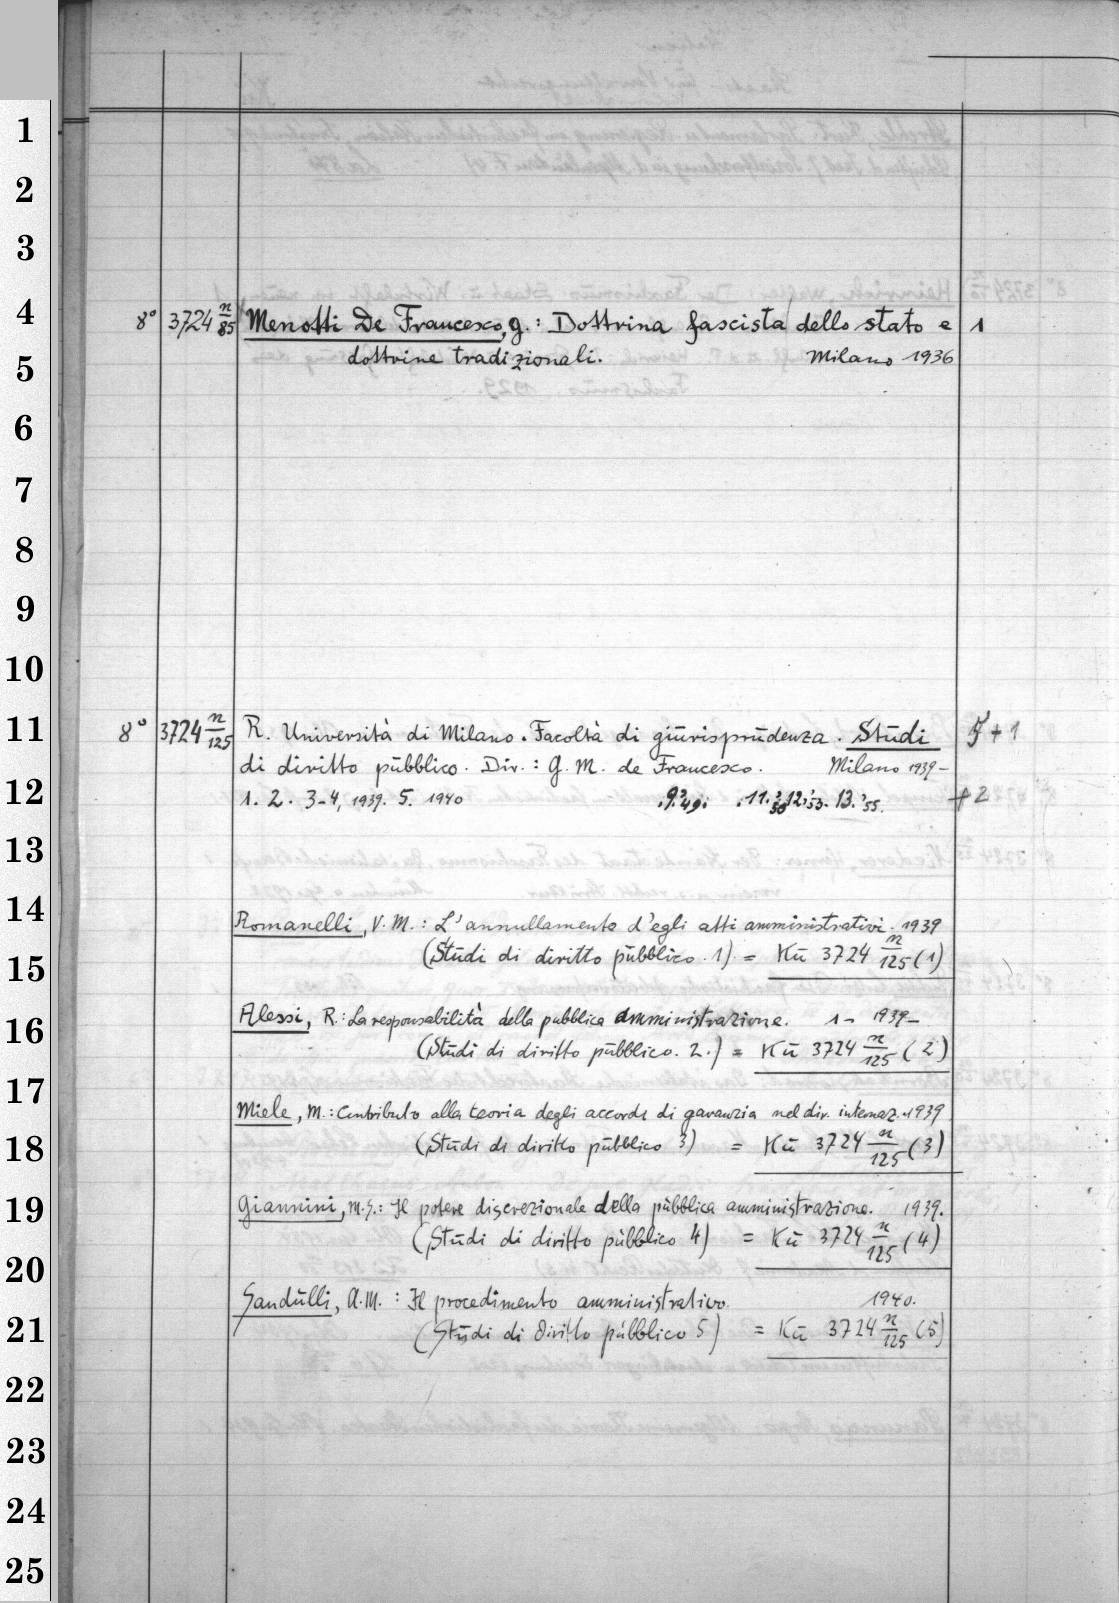 1
2
3
4
5
6
7
8
9
10
11
12
13
14
15
16
17
18
19
20
21
22
23
24
25
8° 3724 n/85 Menotti De Francesco, G.: Dottrina fascista dello stato e 1
dottrine tradizionali. Milano 1936
8° 3724 n/125 R. Università di Milano. Facoltà di giūrisprūdenza. Stūdi 5 + 1
di diritto pūbblico. Dir.: G. M. de Francesco. Milano 1939-
1. 2. 3-4, 1939. 5. 1940 9. '49. 11. 12. '53. 13. '55. + 2
Romanelli, V. M.: L'annullamento d'egli atti amministrativi. 1939
(Stūdi di diritto pūbblico. 1) = Kū 3724 n/125 (1)
Alessi, R.: La responsabilità della pubblica amministrazione. 1- 1939-
(Stūdi di diritto pūbblico. 2.) = Kū 3724 n/125 (2)
Miele, M.: Contributo alla teoria degli accordi di garanzia nel dir. internaz. 1939
(Stūdi di diritto pūbblico 3) = Kū 3724 n/125 (3)
Giannini, M.S.: Il potere discrezionale della pūbblica amministrazione. 1939.
(Stūdi di diritto pūbblico 4) = Kū 3724 n/125 (4)
Sandūlli, A.M.: Il procedimento amministrativo. 1940.
(Stūdi di diritto pūbblico 5) = Kū 3724 n/125 (5)